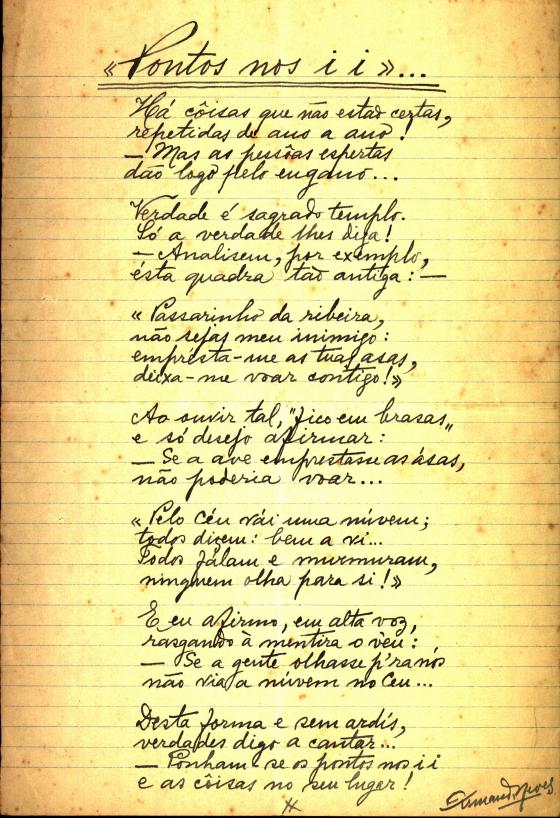 «Pontos nos i i»...
Há côisas que não estão certas,
repetidas de ano a ano!
— Mas as pessôas espertas
dão logo pelo engano...
Verdade é sagrado templo.
Só a verdade lhes diga!
— Analisem, por exemplo,
ésta quadra tão antiga: —
« Passarinho da ribeira,
não sejas meu inimigo:
empresta-me as tuas asas,
deixa-me voar contigo!»
Ao ouvir tal, "fico em brasas„
e só desejo afirmar:
— Se a ave emprestasse as ásas,
não poderia voar...
« Pelo céu vái uma núvem;
todos dizem: bem a vi...
Todos fálam e murmuram,
ninguem olha para si!»
E eu afirmo, em alta voz,
rasgando à mentira o véu:
— Se a gente olhasse p'ra nós
não via a núvem no Ceu...
Desta forma e sem ardís,
verdades digo a cantar...
— Ponham-se os pontos nos i i
e as côisas no seu lugar!
Armando Neves